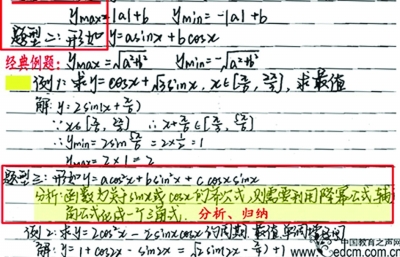 ymax=|a|+b ymin=-|a|+b
题型二:形如y=asinx+bcosx
经典例题: ymax=√a²+b² ymin=-√a²+b²
例1:求y=cosx+√3sinx, x∈[π/6, 2π/3],求最值
解:y=2sin(x+π/6)
∵x∈[π/6, 2π/3] ∴x+π/6∈[π/3, 5π/6]
∴ymin=2sin5π/6=2×1/2=1
ymax=2×1=2
题型三:形如y=acos²x+bsin²x+ccosxsinx
分析:函数为关于sinx或cosx的齐次式,则需要利用降幂公式,辅
助角公式化成一个三角式. 分析、归纳
例2:求y=2cos²x-2sinxcosx的周期.最值.单调增区间
解:y=1+cos2x-sin2x=√2sin(2x-π/4)+1
中国教育之声网
edcm.com.cn